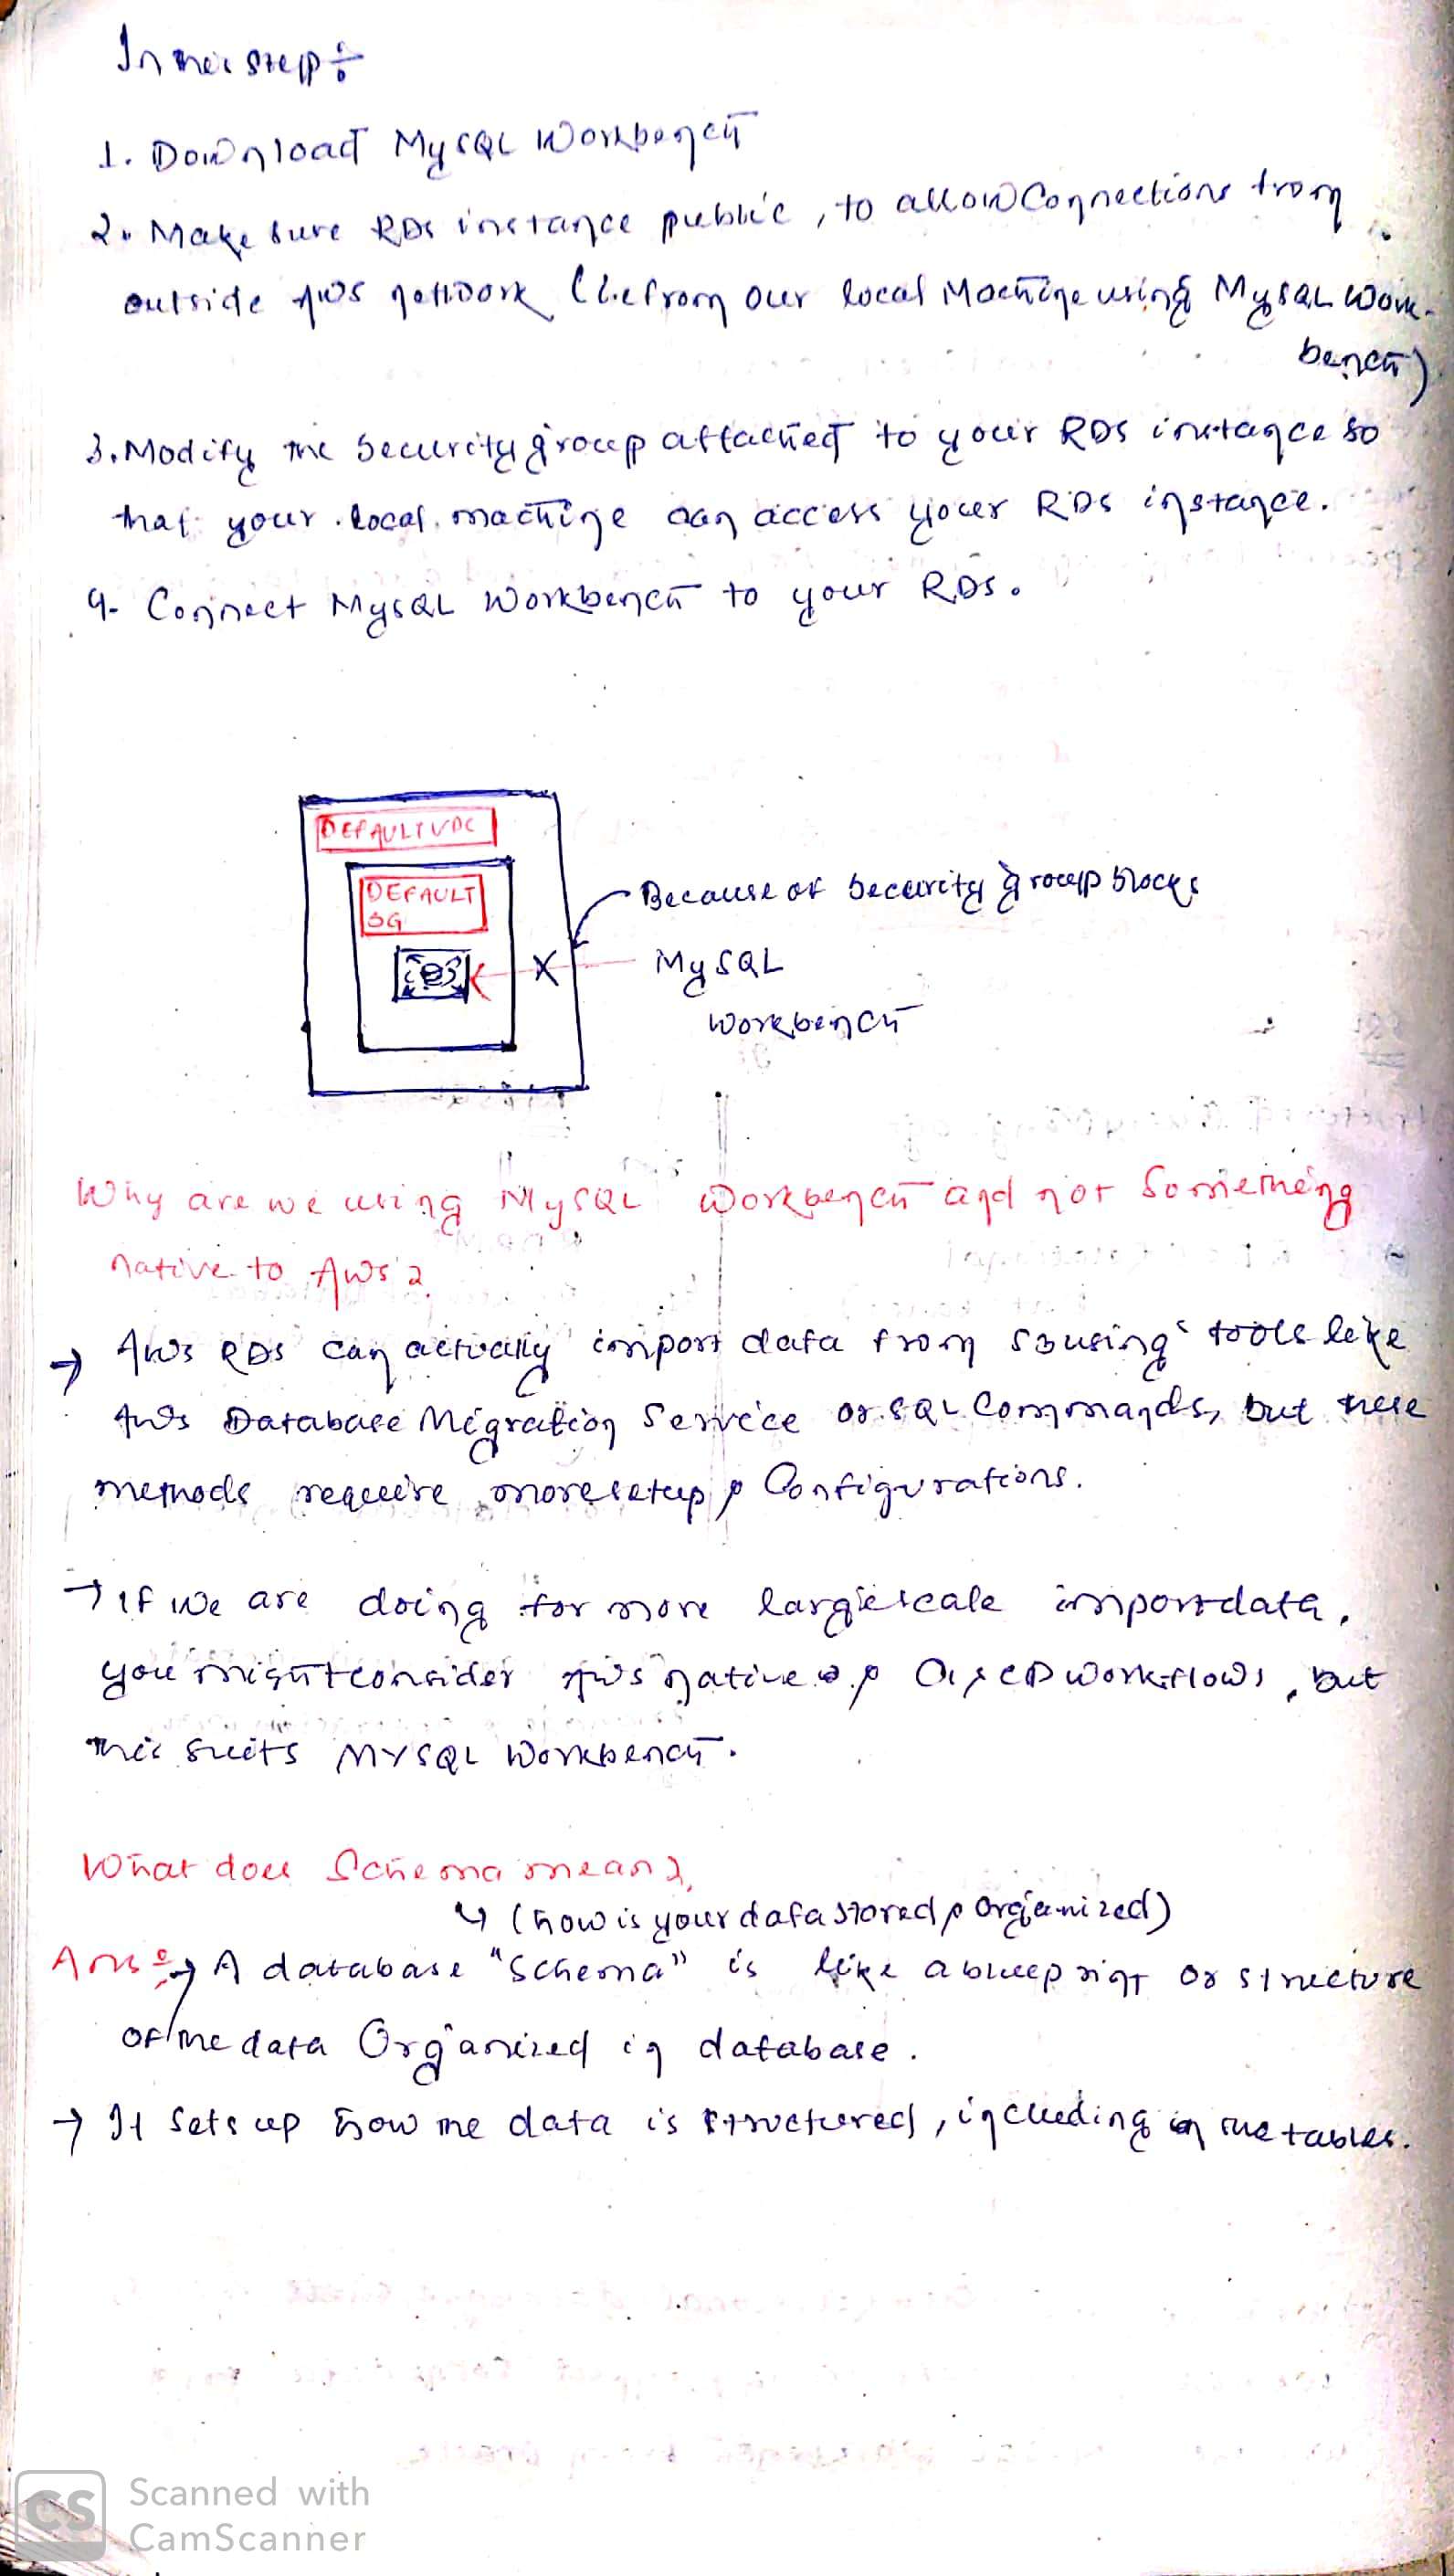 In this step :-
1. Download MySQL Workbench
2. Make sure RDS instance public, to allow Connections from
outside AWS network (i.e from our local Machine using MySQL Work-
bench)
3. Modify the Security group attached to your RDS instance so
that your local machine can access your RDS instance.
4. Connect MySQL Workbench to your RDS.
DEFAULT VPC
DEFAULT
SG
Because of Security group blocks
X
MySQL
Workbench
Why are we using MySQL Workbench and not Something
native to AWS?
→ AWS RDS can actually import data from using tools like
AWS Database Migration Service or SQL Commands, but these
methods require more setup & Configurations.
→ If we are doing for more large scale import data,
you might consider AWS native & CI/CD workflows, but
this suits MYSQL Workbench.
What does Schema mean?
↳ (how is your data stored & Organized)
Ans :→ A database "Schema" is like a blueprint or structure
of the data Organized in database.
→ It Sets up how the data is structured, including in the tables.
CS
Scanned with
CamScanner